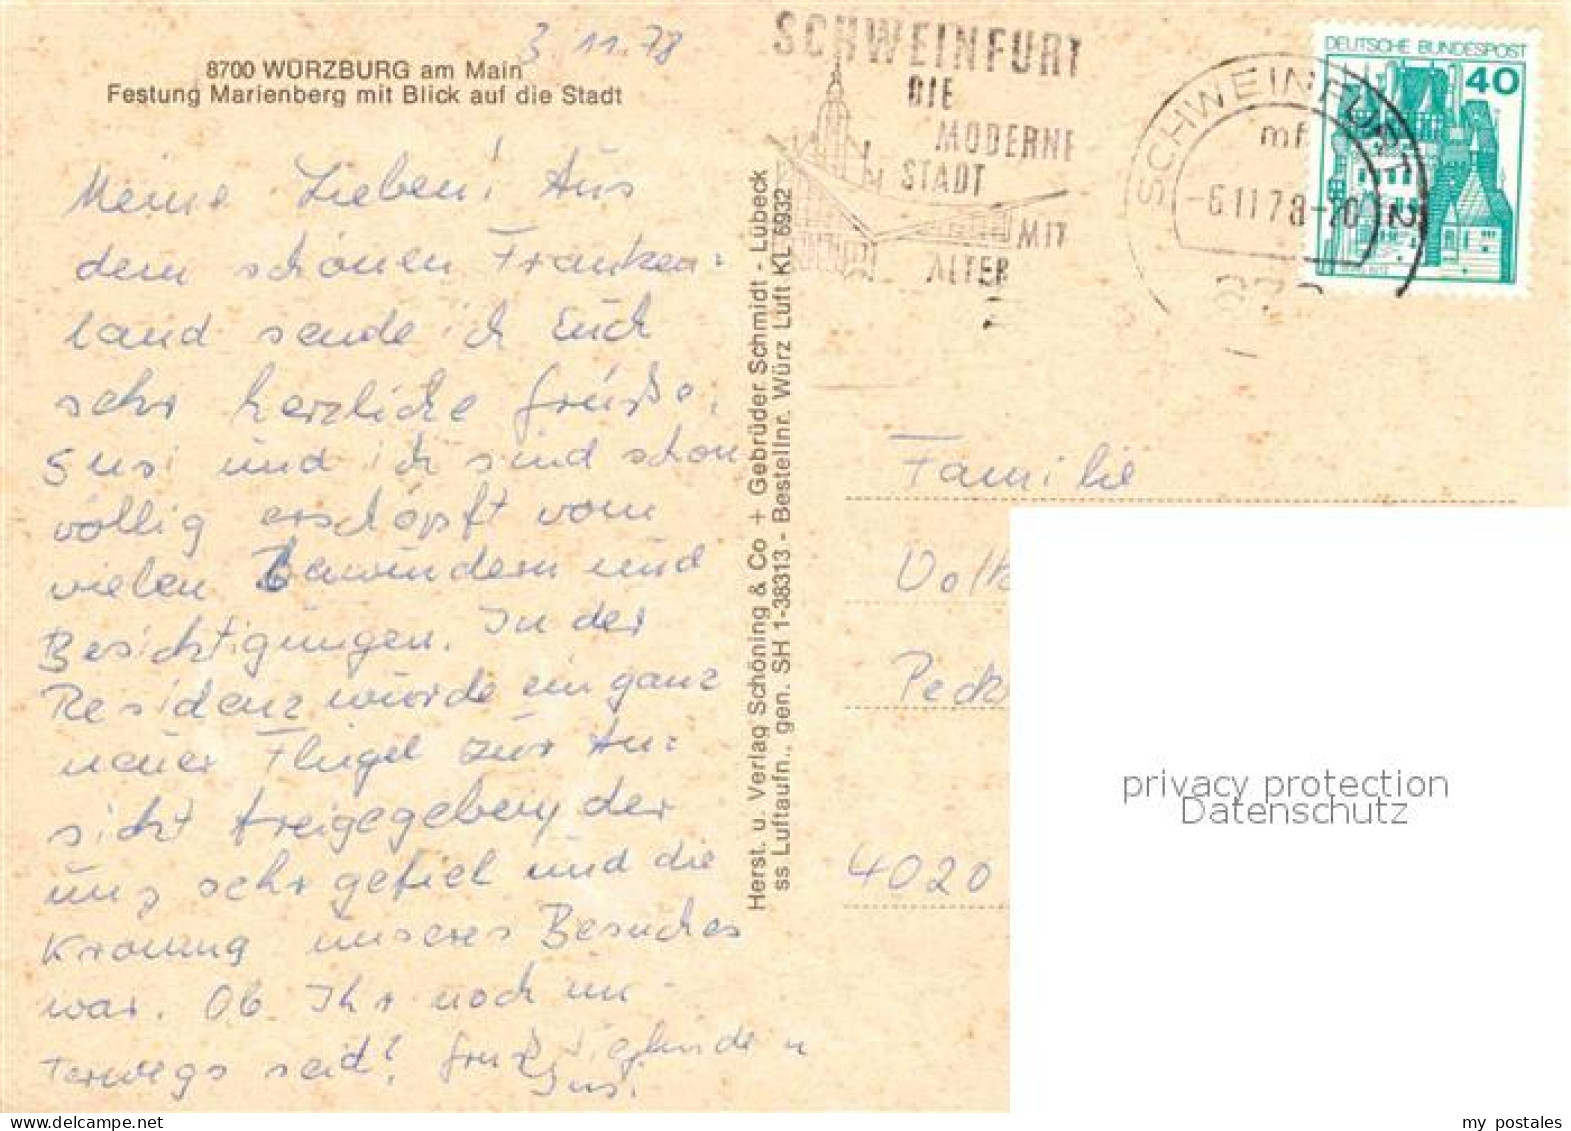 3. 11. 78
8700 WÜRZBURG am Main
Festung Marienberg mit Blick auf die Stadt
Meine Lieben! Aus
dem schönen Franken=
land sende ich Euch
sehr herzliche Grüße.
Susi und ich sind schon
völlig erschöpft vom
vielen Bewundern und
Besichtigungen. In der
Residenz wurde ein ganz
neuer Flügel zur An=
sicht freigegeben, der
uns sehr gefiel und die
Krönung unseres Besuches
war. Ob Ihr noch un-
terwegs seid? Gruß Sieglinde u
Susi.
Herst. u. Verlag Schöning & Co + Gebrüder Schmidt - Lübeck
ss Luftaufn., gen. SH 1-38313 - Bestellnr. Würz Luft KL 6932
SCHWEINFURT
DIE
MODERNE
STADT
MIT
ALTER
SCHWEINFURT 2
mf
-6.11.78-20
DEUTSCHE BUNDESPOST
40
Familie
Volk
Peck
4020
privacy protection
Datenschutz
my postales